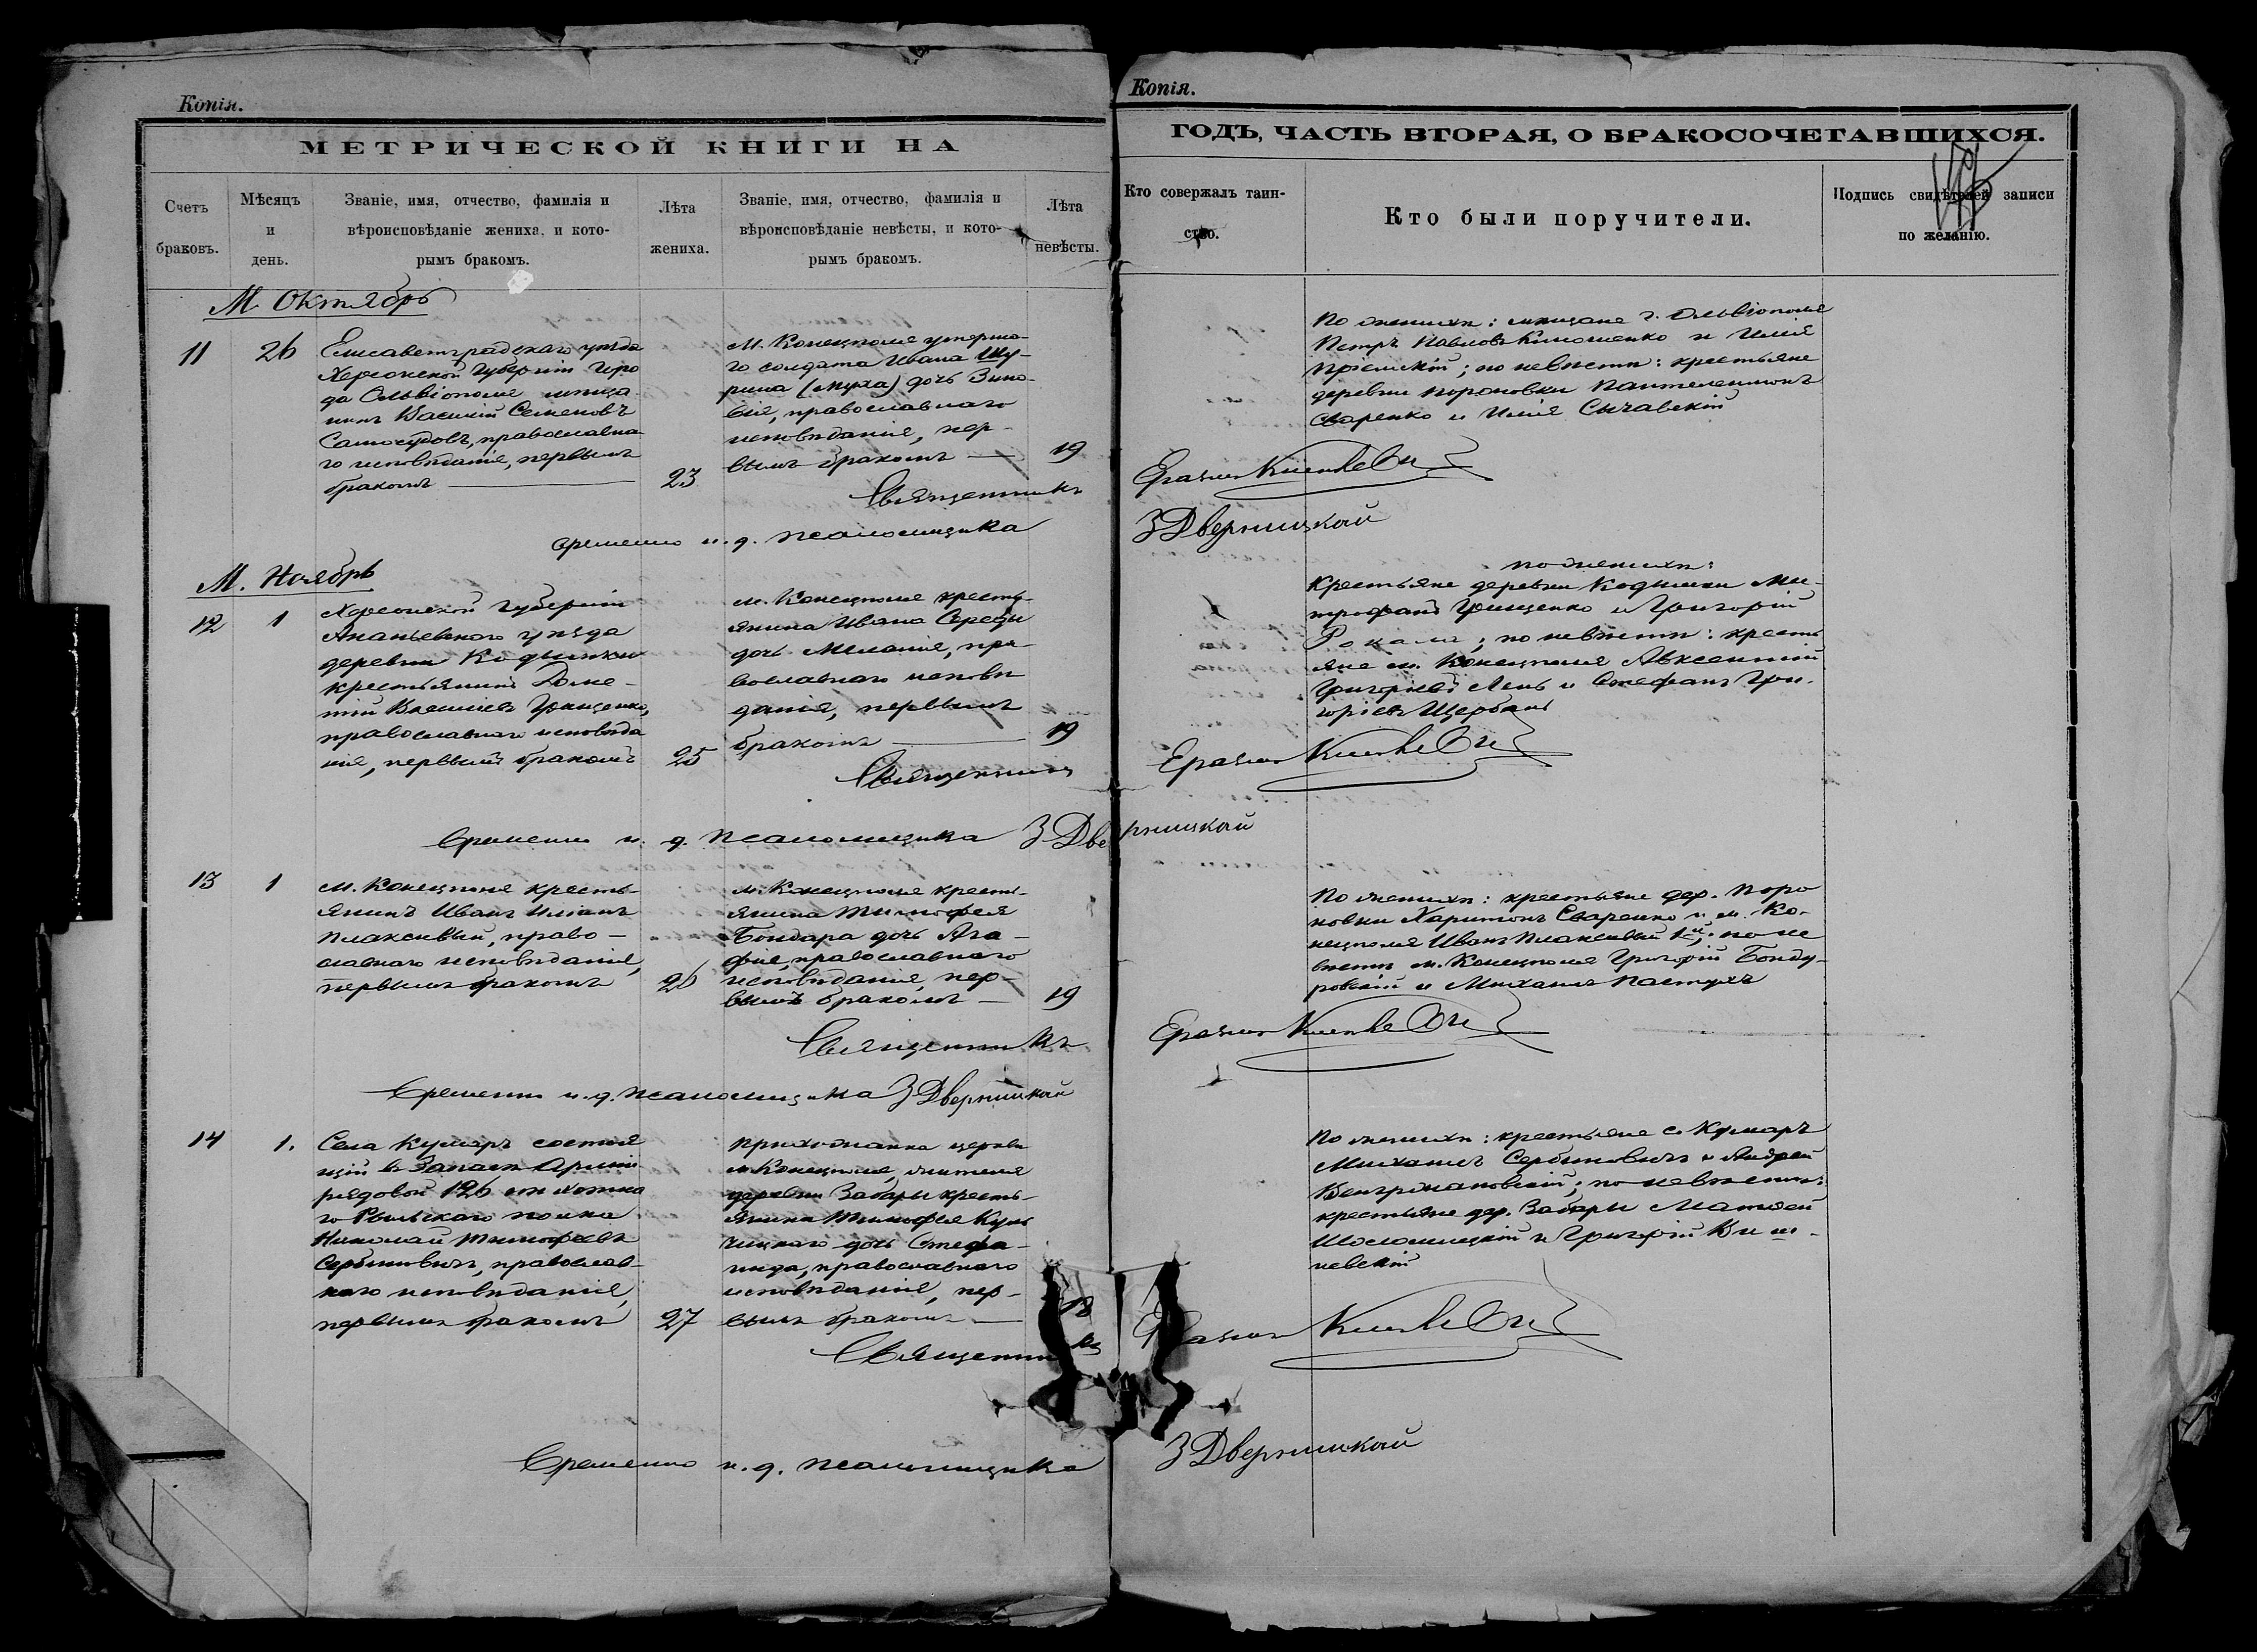 Копія.
МЕТРИЧЕСКОЙ КНИГИ НА
Счетъ браковъ.
Мѣсяцъ и день.
Званіе, имя, отчество, фамилія и
вѣроисповѣданіе жениха, и кото-
рымъ бракомъ.
Лѣта жениха.
Званіе, имя, отчество, фамилія и
вѣроисповѣданіе невѣсты, и кото-
рымъ бракомъ.
Лѣта невѣсты.
Копія.
ГОДЪ, ЧАСТЬ ВТОРАЯ, О БРАКОСОЧЕТАВШИХСЯ.
Кто совержалъ таин-
ство.
Кто были поручители.
Подпись свидѣтелей записи
по желанію.
М. Октябрь
11
26
Елисаветградскаго уѣзда
Херсонской Губерніи горо
да Ольвіополя мѣща
нинъ Василій Семеновъ
православна
го исповѣданія, первымъ
бракомъ
23
м. Конецполя умерша-
го солдата Ивана Шу-
рина (муха) дочь Зино-
вія, православнаго
исповѣданія, пер-
вымъ бракомъ
19
По женихѣ: мѣщане г. Ольвіополя
Петръ Павловъ и Илія
по невѣстѣ: крестьяне
деревни Пороновки Пантелеимонъ
Сваренко и Илія Сычавскій
Священникъ
временно и. д. псаломщика
З Дверницкій
М. Ноябрь
12
1
Херсонской губерніи
Ананьевскаго уѣзда
деревни Кодымки
крестьянинъ Доме-
тій Грищенко,
православнаго исповѣда
нія, первымъ бракомъ
25
м. Конецполя кресть-
янина Ивана Середы
дочь Меланія, пра-
вославнаго исповѣ
данія, первымъ
бракомъ
19
по женихѣ:
Крестьяне деревни Кодымки Ми-
трофанъ Грищенко и Григорій
по невѣстѣ: кресть
яне м. Конецполя Авксентій
Григоріевъ Лень и Стефанъ Гри-
горіевъ Щербань
Священникъ
Временно и. д. псаломщика З Дверницкій
13
1
м. Конецполя кресть-
янинъ Иванъ
Плаксивый, право-
славнаго исповѣданія,
первымъ бракомъ
26
м. Конецполя кресть-
янина Тимофея
Бондара дочь Ага-
фія, православнаго
исповѣданія, пер-
вымъ бракомъ
19
По женихѣ: крестьяне дер. Поро
новки Харитонъ Сваренко и м. Ко-
нецполя Иванъ Плаксивый 1й; по не
вѣстѣ м. Конецполя Григорій Бонду-
ровскій и Михаилъ Пастухъ
Священникъ
Временно и. д. псаломщика З Дверницкій
14
1.
Села Кумаръ состоя
щій въ Запасѣ Арміи
рядовой 126 пѣхотна
го Рыльскаго полка
Николай Тимофеевъ
Сербиновичъ, православ-
наго исповѣданія,
первымъ бракомъ
27
прихожанка церкви
м. Конецполя, жителя
деревни Забары кресть-
янина Тимофея Куль
чицкаго дочь Стефа-
нида, православнаго
исповѣданія, пер-
вымъ бракомъ
18
По женихѣ: крестьяне с. Кумаръ
Михаилъ Сербиновичъ и Андрей
Венгржановскій; по невѣстѣ:
крестьяне дер. Забары Матвей
и Григорій Виш-
невскій
Священникъ
Временно и. д. псаломщика
З Дверницкій